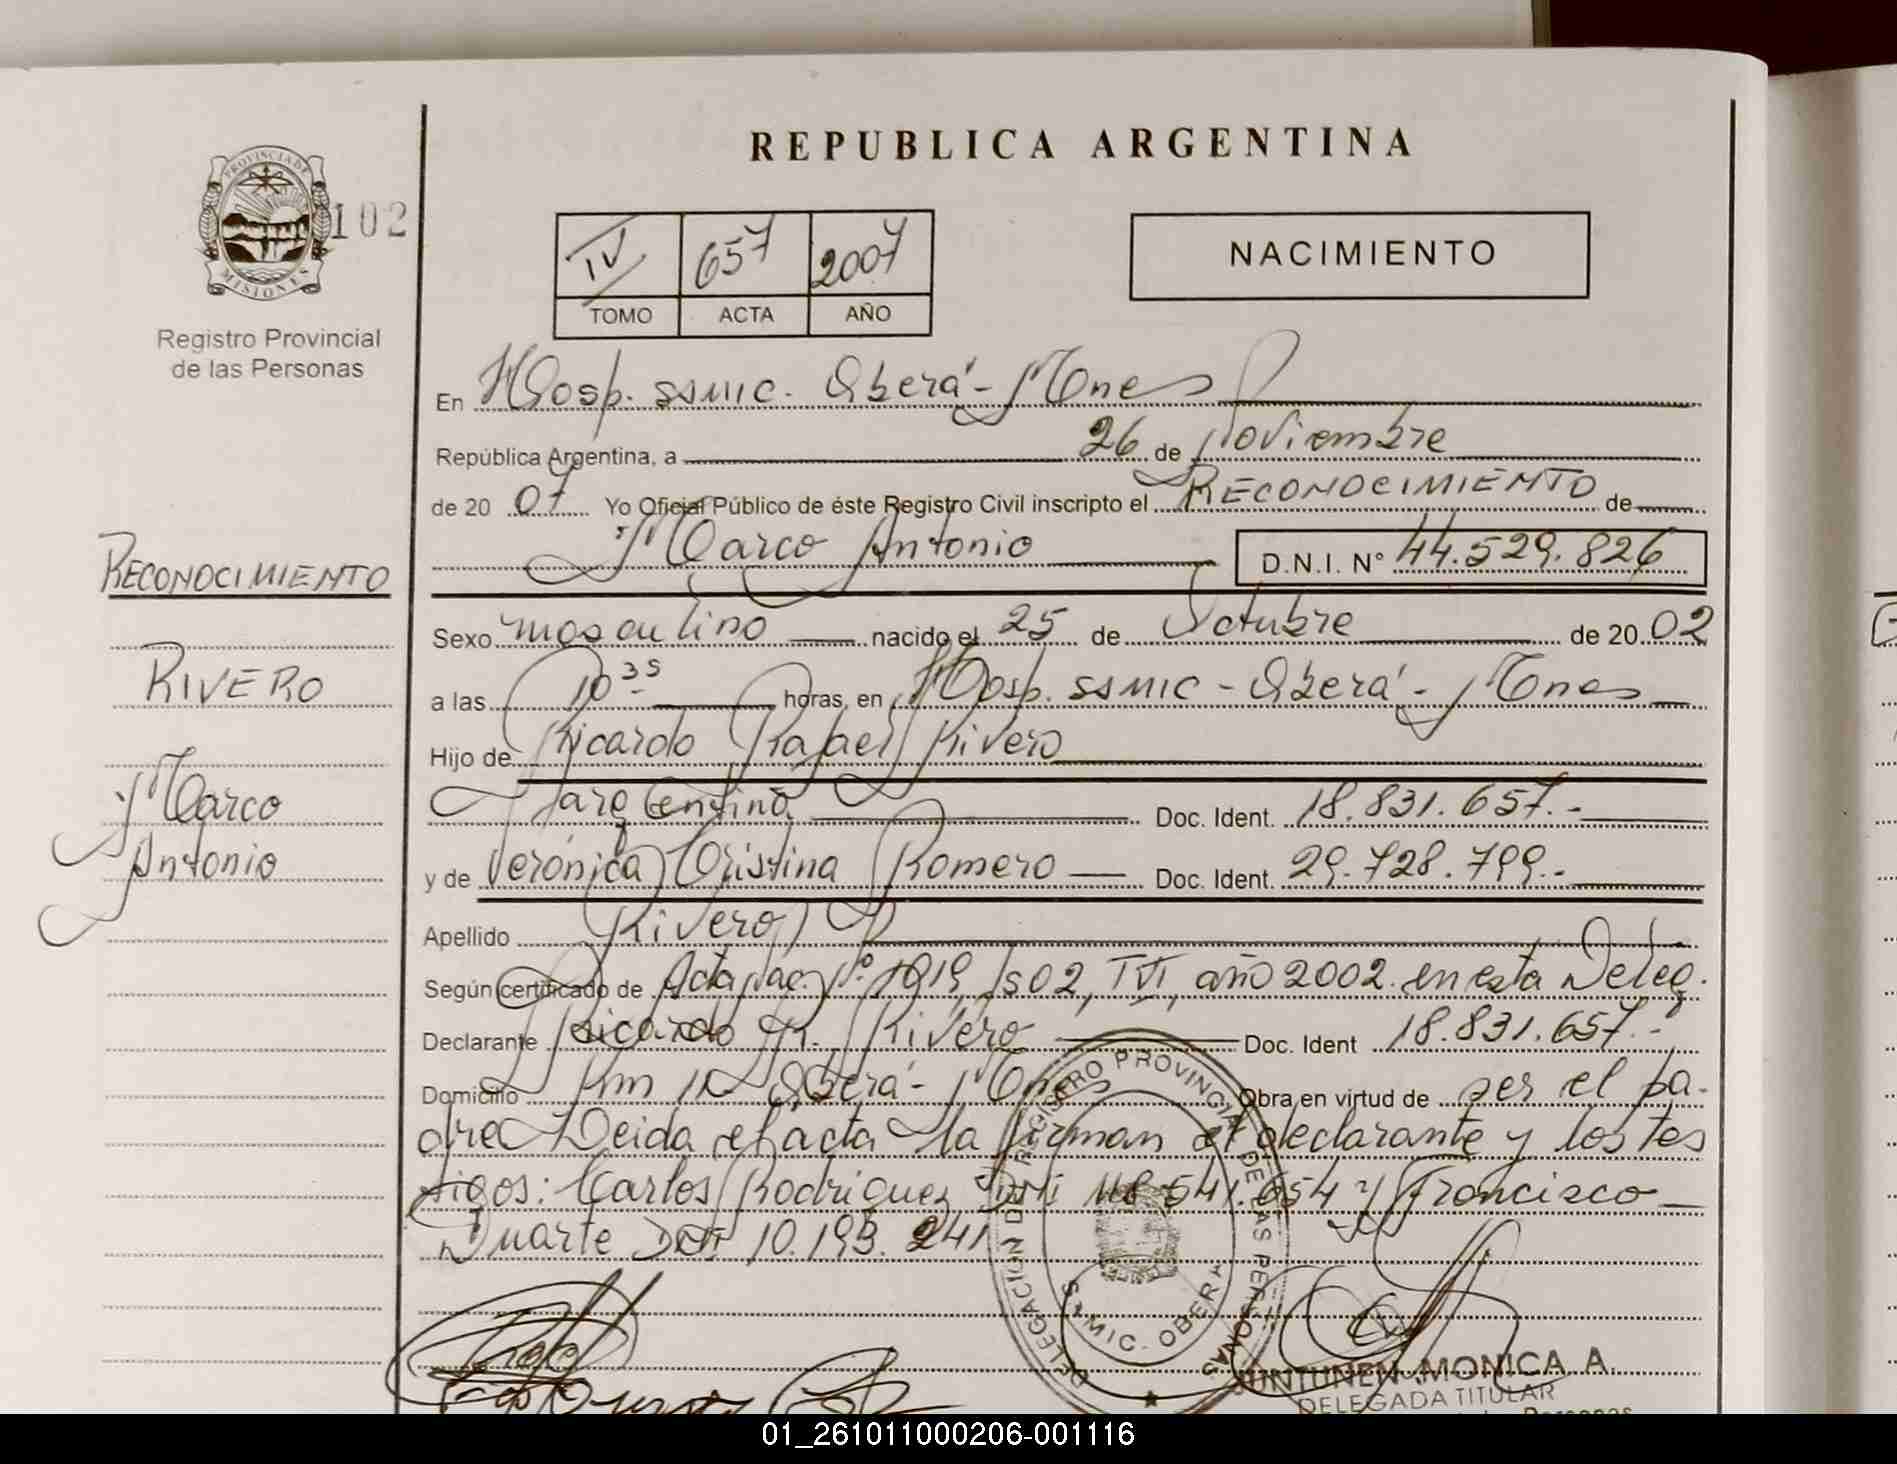 REPUBLICA ARGENTINA
PROVINCIA DE
MISIONES
102
Registro Provincial
de las Personas
IV 657 2007
TOMO ACTA AÑO
NACIMIENTO
En Hosp. SSMIC. Oberá - Mnes
República Argentina, a 26 de Noviembre
de 20 07 Yo Oficial Público de éste Registro Civil inscripto el RECONOCIMIENTO de
Marco Antonio D.N.I. N° 44.529.826
RECONOCIMIENTO
RIVERO
Marco
Antonio
Sexo masculino nacido el 25 de Octubre de 20 02
a las 10 35 horas, en Hosp. SSMIC - Oberá - Mnes
Hijo de Ricardo Rafael Rivero
argentino Doc. Ident. 18.831.657.-
y de Verónica Cristina Romero Doc. Ident. 29.728.799.-
Apellido Rivero
Según certificado de Acta Nac. N° 1919, Is02, TVI, año 2002. en esta Deleg.
Declarante Ricardo R. Rivero Doc. Ident 18.831.657.-
Domicilio Km Oberá - Mnes Obra en virtud de ser el pa-
dre Leida el acta la firman el declarante y los tes
tigos: Carlos Rodriguez DNI 541.654 y Francisco
Duarte DNI 10.193.241
DELEGACION DEL REGISTRO PROVINCIAL DE LAS PERSONAS
S.MIC. OBERA
JUNTUNEN, MONICA A.
DELEGADA TITULAR
01_261011000206-001116